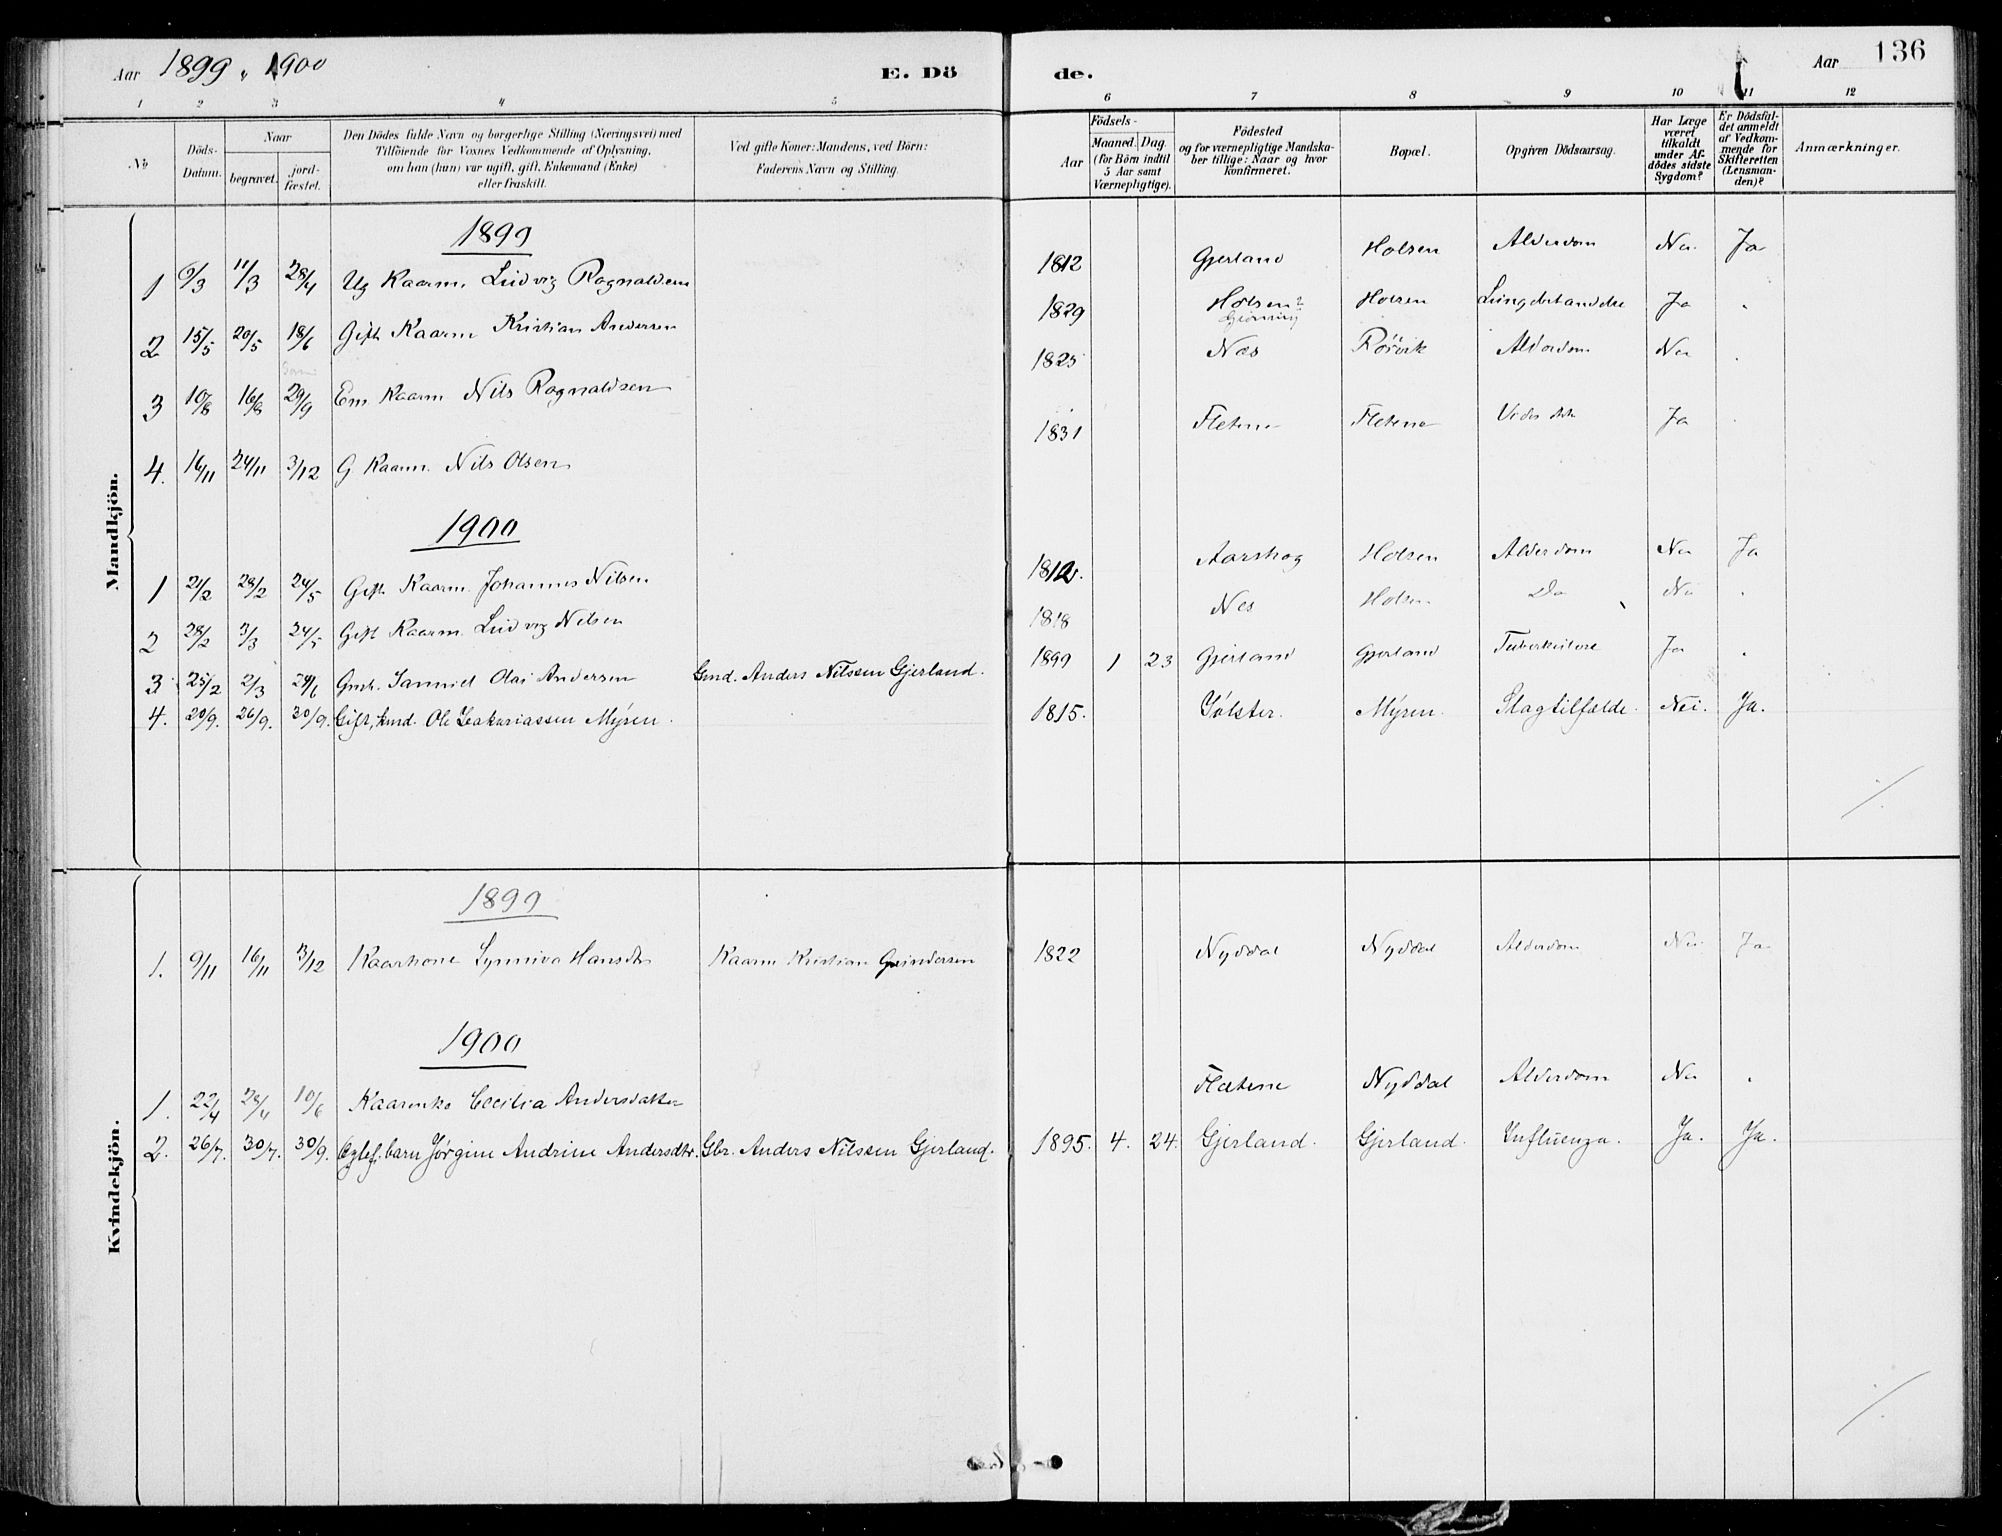 Aar 1899 " 1900 E. Dö de. Aar 136
1 2 3 4 5 6 7 8 9 10 11 12
No
Döds-
Datum.
Naar
begravet.
jord-
fæstet.
Den Dödes fulde Navn og borgerlige Stilling (Næringsvei) med
Tilföiende for Voxnes Vedkommende af Oplysning,
om han (hun) var ugift, gift, Enkemand (Enke)
eller fraskilt.
Ved gifte Koner: Mandens, ved Börn:
Faderens Navn og Stilling.
Födsels-
Aar
Maaned. Dag.
(for Börn indtil
5 Aar samt
Værnepligtige).
Födested
og for værnepligtige Mandska-
ber tillige: Naar og hvor
konfirmeret.
Bopæl.
Opgiven Dödsaarsag.
Har Læge
været
tilkaldt
under Af-
dödes sidste
Sygdom?
Er Dödsfal-
det anmeldt
af Vedkom-
mende for
Skifteretten
(Lensman-
den)?
Anmærkninger.
Mandkjön.
1899
1 6/3 11/3 28/4 Ug Kaarm. Ludvig Rognaldsen 1812 Gjerland Holsen Alderdom Nei Ja
2 15/5 20/5 18/6 Gift Kaarm Kristian Andersen 1829 Holsen? Holsen Ja "
3 10/8 16/8 29/9 Em Kaarm Nils Rognaldsen 1825 Nes Rørvik Alderdom Nei "
4. 16/11 24/11 3/12 G Kaarm. Nils Olsen 1831 Fletene Fletene Ja "
1900
1 21/2 28/2 24/5 Gift Kaarm. Johannes Nilsen 1812. Aarskog Holsen Alderdom Nei Ja
2 28/2 3/3 24/5 Gift Kaarm. Ludvig Nilsen 1818 Nes Holsen Do Nei "
3 25/2 2/3 24/6 Gmb. Samuel Olai Andersen Gmd. Anders Nilssen Gjerland. 1899 1 23 Gjerland Gjerland Tuberkulose Ja "
4. 20/9. 26/9. 30/9. Gift, kmd. Ole Zakariassen Mýren. 1815. Jølster. Mýren. Slagtilfælde. Nei. Ja.
Kvindekjön.
1899
1. 9/11 16/11 3/12 Kaarkone Synniva Hansdtr Kaarm Kristian 1822 Nyddal Nyddal Alderdom Nei Ja
1900
1. 22/4 28/4 10/6 Kaarenke Cecilia Andersdatter Fletene Nyddal Alderdom Nei "
2. 26/7. 30/7. 30/9. Egtef. barn Jørgine Andrine Andersdtr. Gbr. Anders Nilssen Gjerland. 1895. 4. 24. Gjerland. Gjerland. Influenza. Ja. Ja.